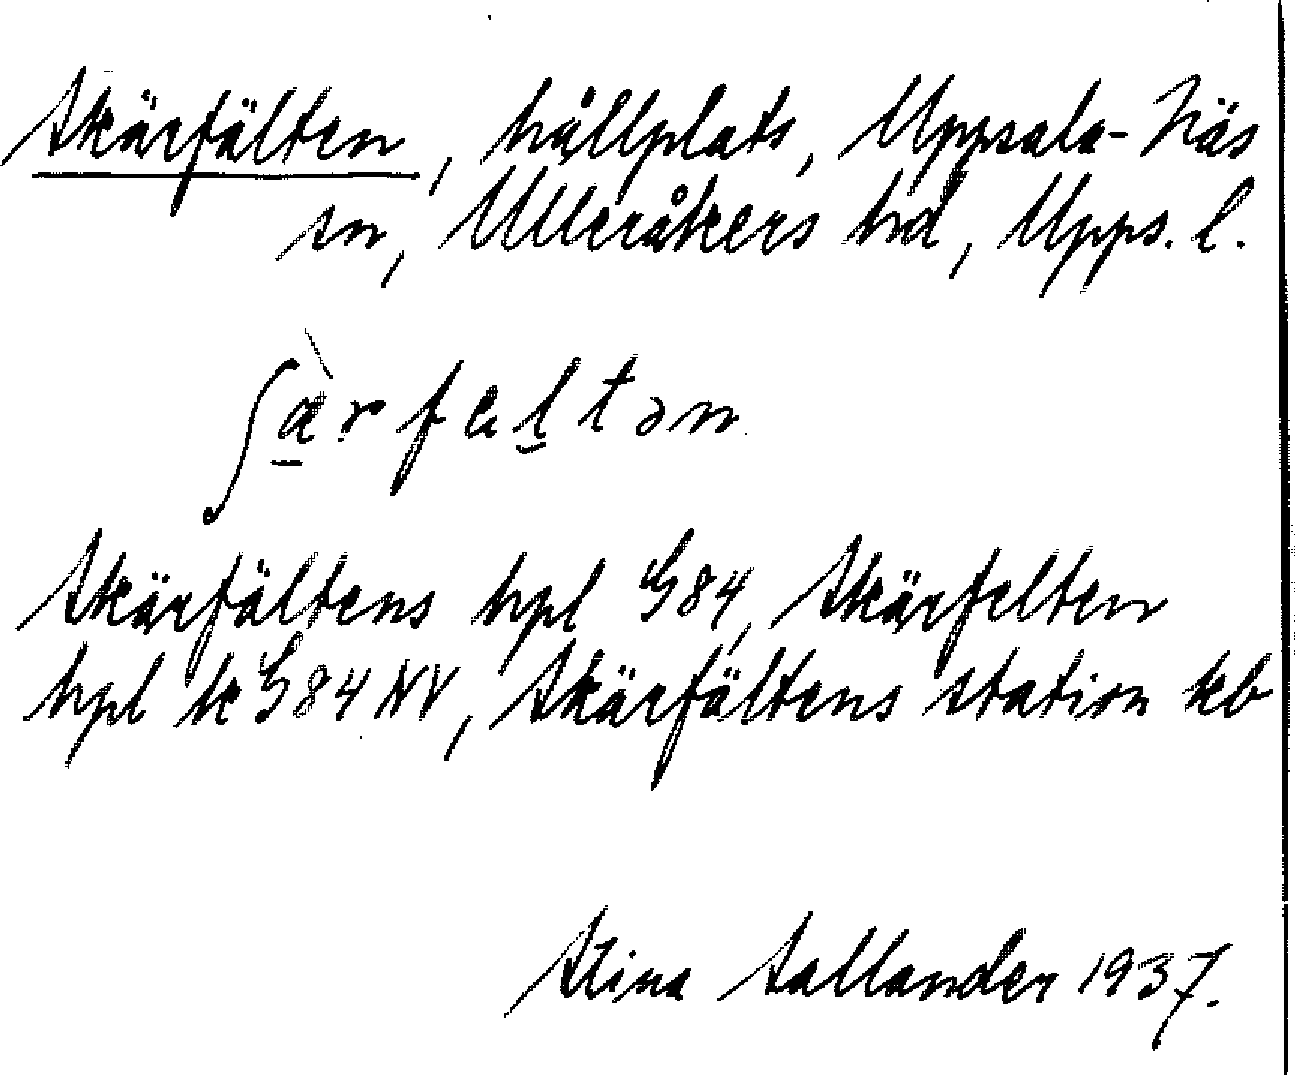 Skärfälten, hållplats, Uppsala-Näs
sn, Ulleråkers hd, Upps. l.
ʃæ̀rfɛltən
Skärfältens hpl G84, Skärfelten
hpl k G84 NV, Skärfältens station kb
Stina Sallander 1937.